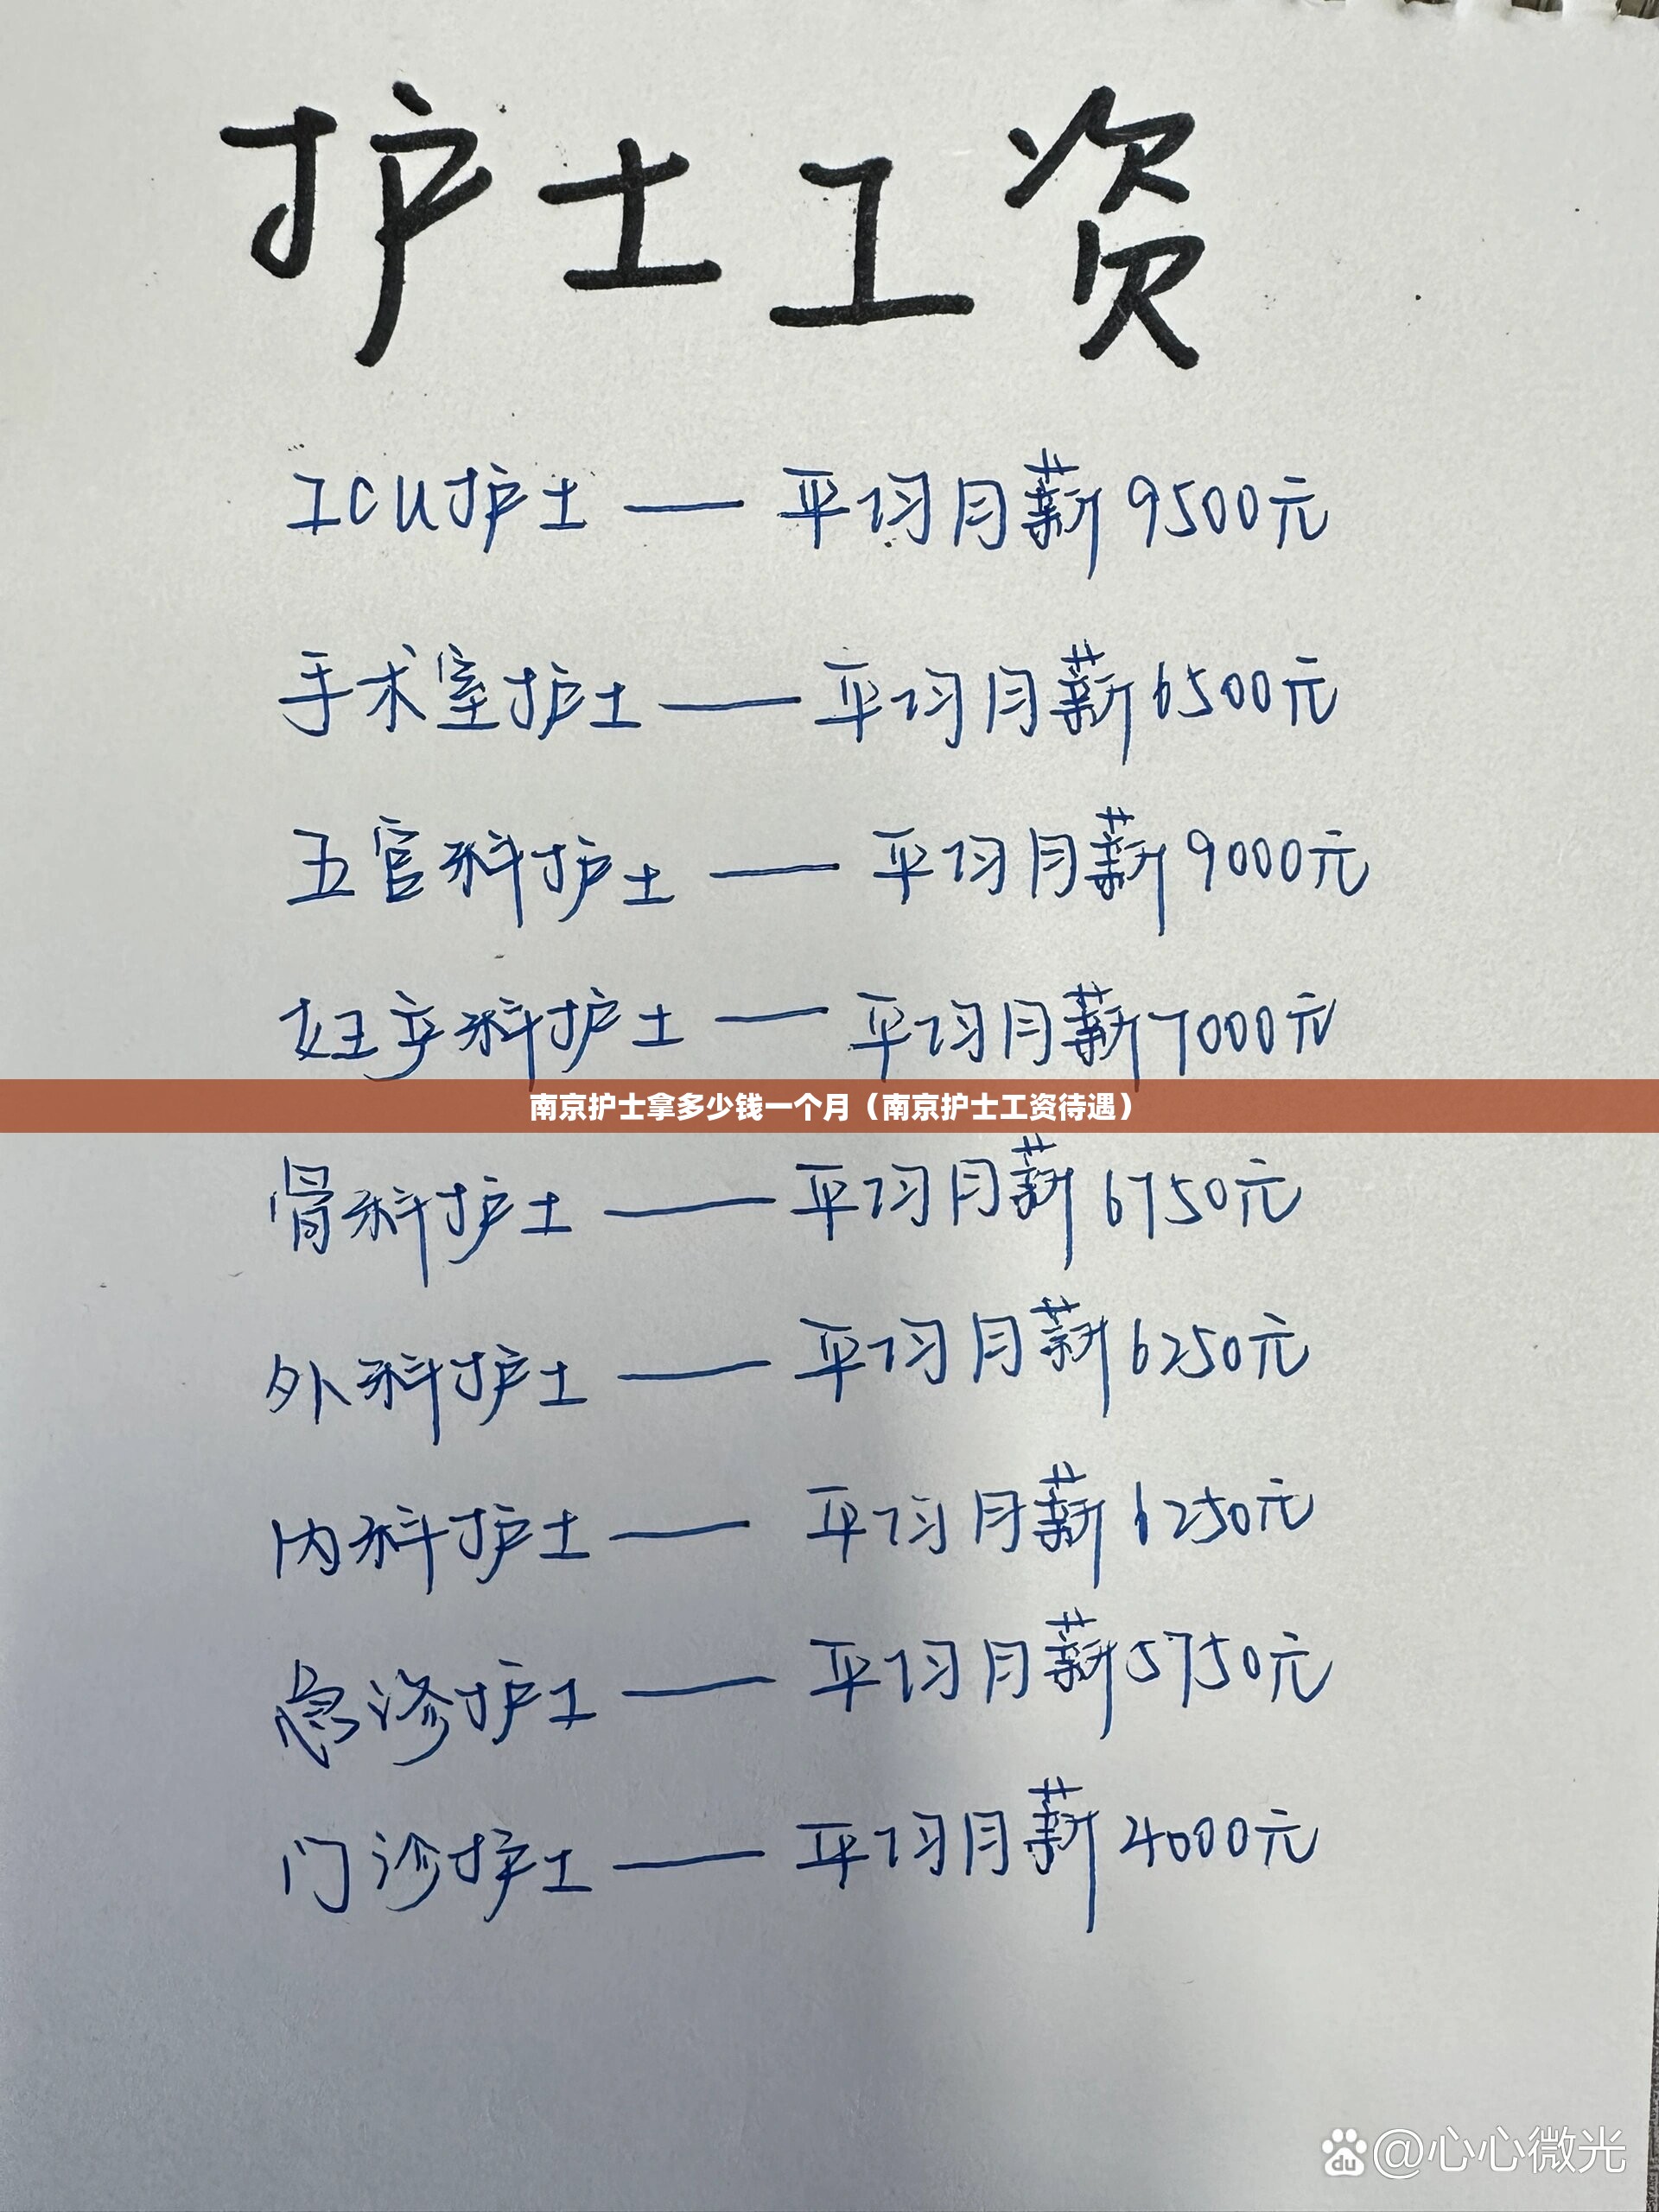 护士工资
ICU护士——平均月薪9500元
手术室护士——平均月薪6500元
五官科护士——平均月薪9000元
妇产科护士——平均月薪7000元
南京护士拿多少钱一个月（南京护士工资待遇）
骨科护士——平均月薪6750元
外科护士——平均月薪6250元
内科护士——平均月薪6250元
急诊护士——平均月薪5750元
门诊护士——平均月薪4000元
du @心心微光